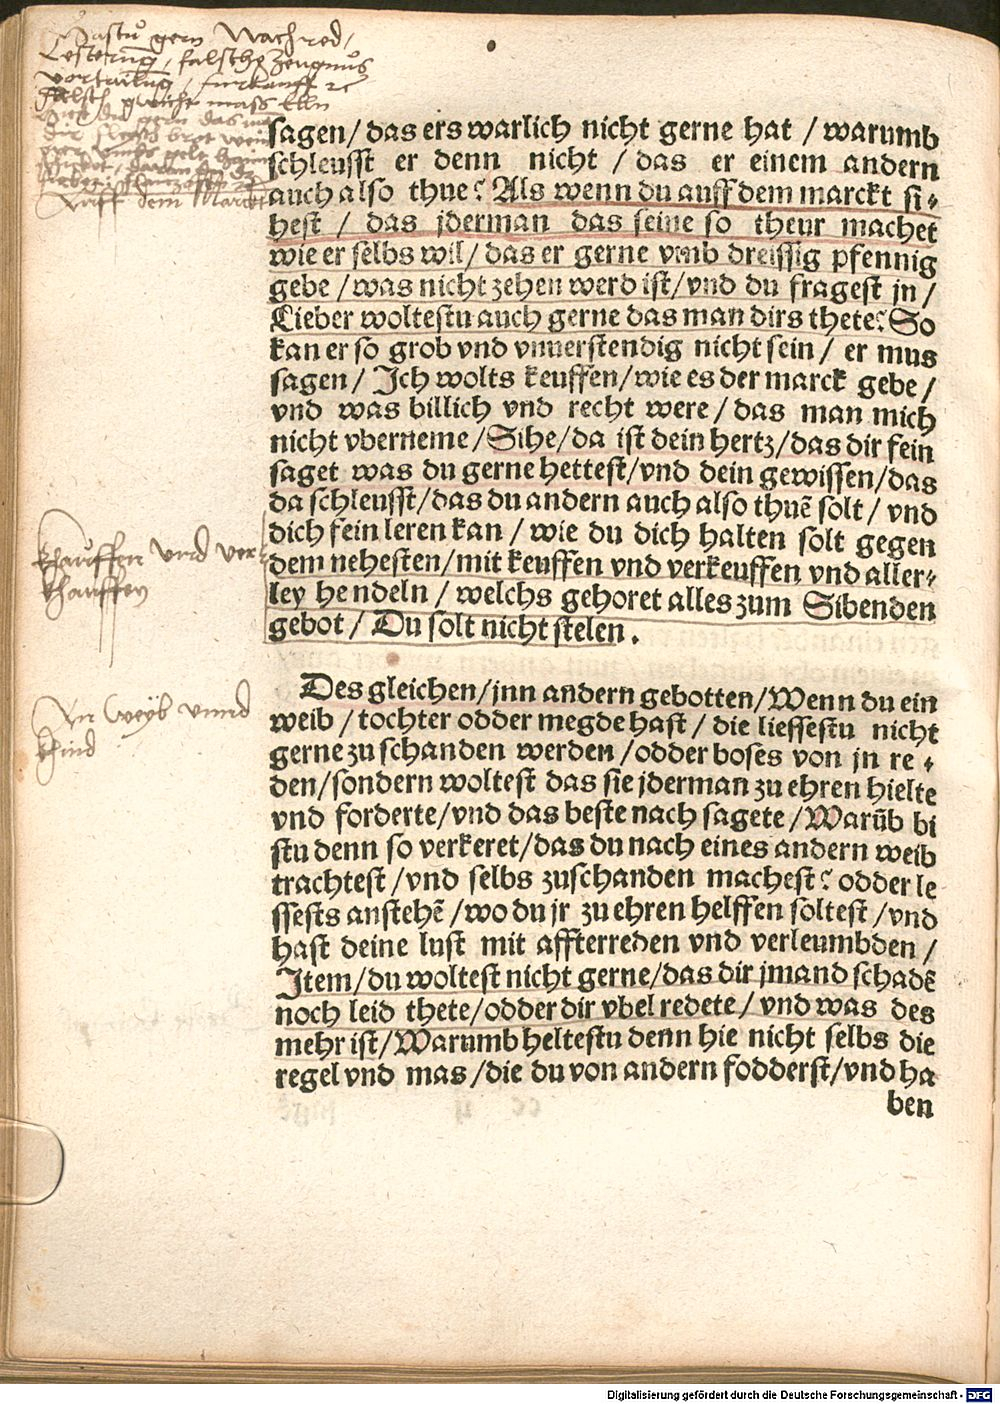 Hastu gern Nachred /
Lesterung, falsche Zeugnus
furkauff
falsch gwicht mass Elln
Auff dem Marckt
sagen / das ers warlich nicht gerne hat / warumb
schleusst er denn nicht / das er einem andern
auch also thue? Als wenn du auff dem marckt si⸗
hest / das jderman das seine so theur machet
wie er selbs wil / das er gerne vmb dreissig pfennig
gebe / was nicht zehen werd ist / vnd du fragest jn /
Lieber woltestu auch gerne das man dirs thete? So
kan er so grob vnd vnuerstendig nicht sein / er mus
sagen / Ich wolts keuffen / wie es der marck gebe /
vnd was billich vnd recht were / das man mich
nicht vberneme / Sihe / da ist dein hertz / das dir fein
saget was du gerne hettest / vnd dein gewissen / das
da schleusst / das du andern auch also thuē solt / vnd
dich fein leren kan / wie du dich halten solt gegen
dem nehesten / mit keuffen vnd verkeuffen vnd aller⸗
ley hendeln / welchs gehoret alles zum Sibenden
gebot / Du solt nicht stelen .
khauffen vnd ver⸗
khauffen
Des gleichen / jnn andern gebotten / Wenn du ein
weib / tochter odder megde hast / die liessestu nicht
gerne zu schanden werden / odder boses von jn re⸗
den / sondern woltest das sie jderman zu ehren hielte
vnd forderte / vnd das beste nach sagete / Warūb bi
stu denn so verkeret / das du nach eines andern weib
trachtest / vnd selbs zuschanden machest? odder le
ssests anstehē / wo du jr zu ehren helffen soltest / vnd
hast deine lust mit affterreden vnd verleumbden /
Item / du woltest nicht gerne / das dir jmand schadē
noch leid thete / odder dir vbel redete / vnd was des
mehr ist / Warumb heltestu denn hie nicht selbs die
regel vnd mas / die du von andern fodderst / vnd ha
ben
An Weyb vnnd
khind
Digitalisierung gefördert durch die Deutsche Forschungsgemeinschaft - DFG